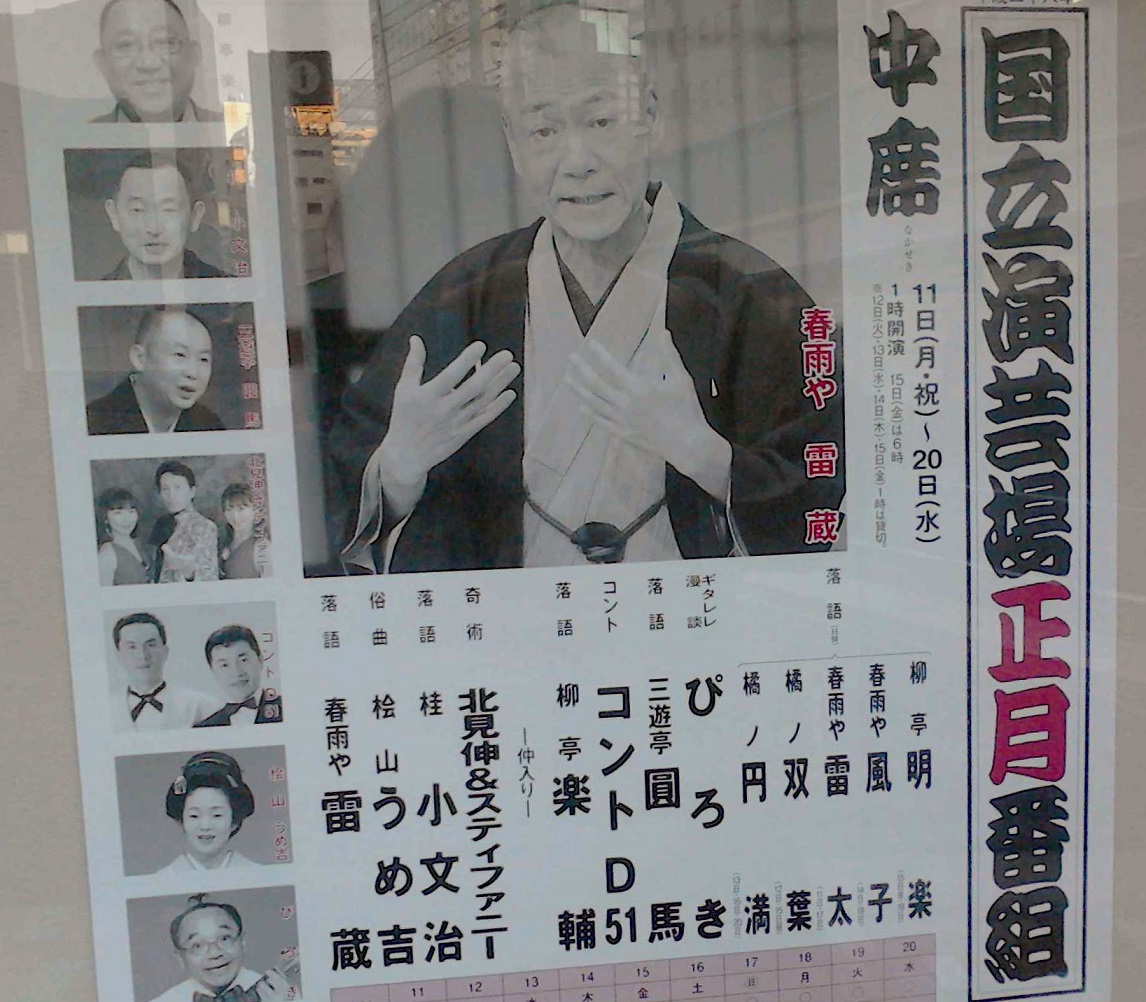 国立演芸場正月番組
中席
なかせき
11日(月・祝)～20日(水)
1時開演 15日(金)は6時
※12日(火)・13日(水)・14日(木)・15日(金)1時は貸切
春雨や 雷蔵
落語
柳亭明楽
春雨や風子
春雨や雷太
橘ノ双葉
橘ノ円満
ギタレレ漫談
ぴろき
落語
三遊亭圓馬
コント
コントD51
落語
柳亭楽輔
―仲入り―
奇術
北見伸&スティファニー
落語
桂小文治
俗曲
桧山うめ吉
落語
春雨や雷蔵
小文治
三遊亭 圓馬
北見伸&スティファニー
コントD51
桧山 うめ吉
ぴろき
11 12 13 14 15 16 17 18 19 20
木 金 土 日 月 火 水